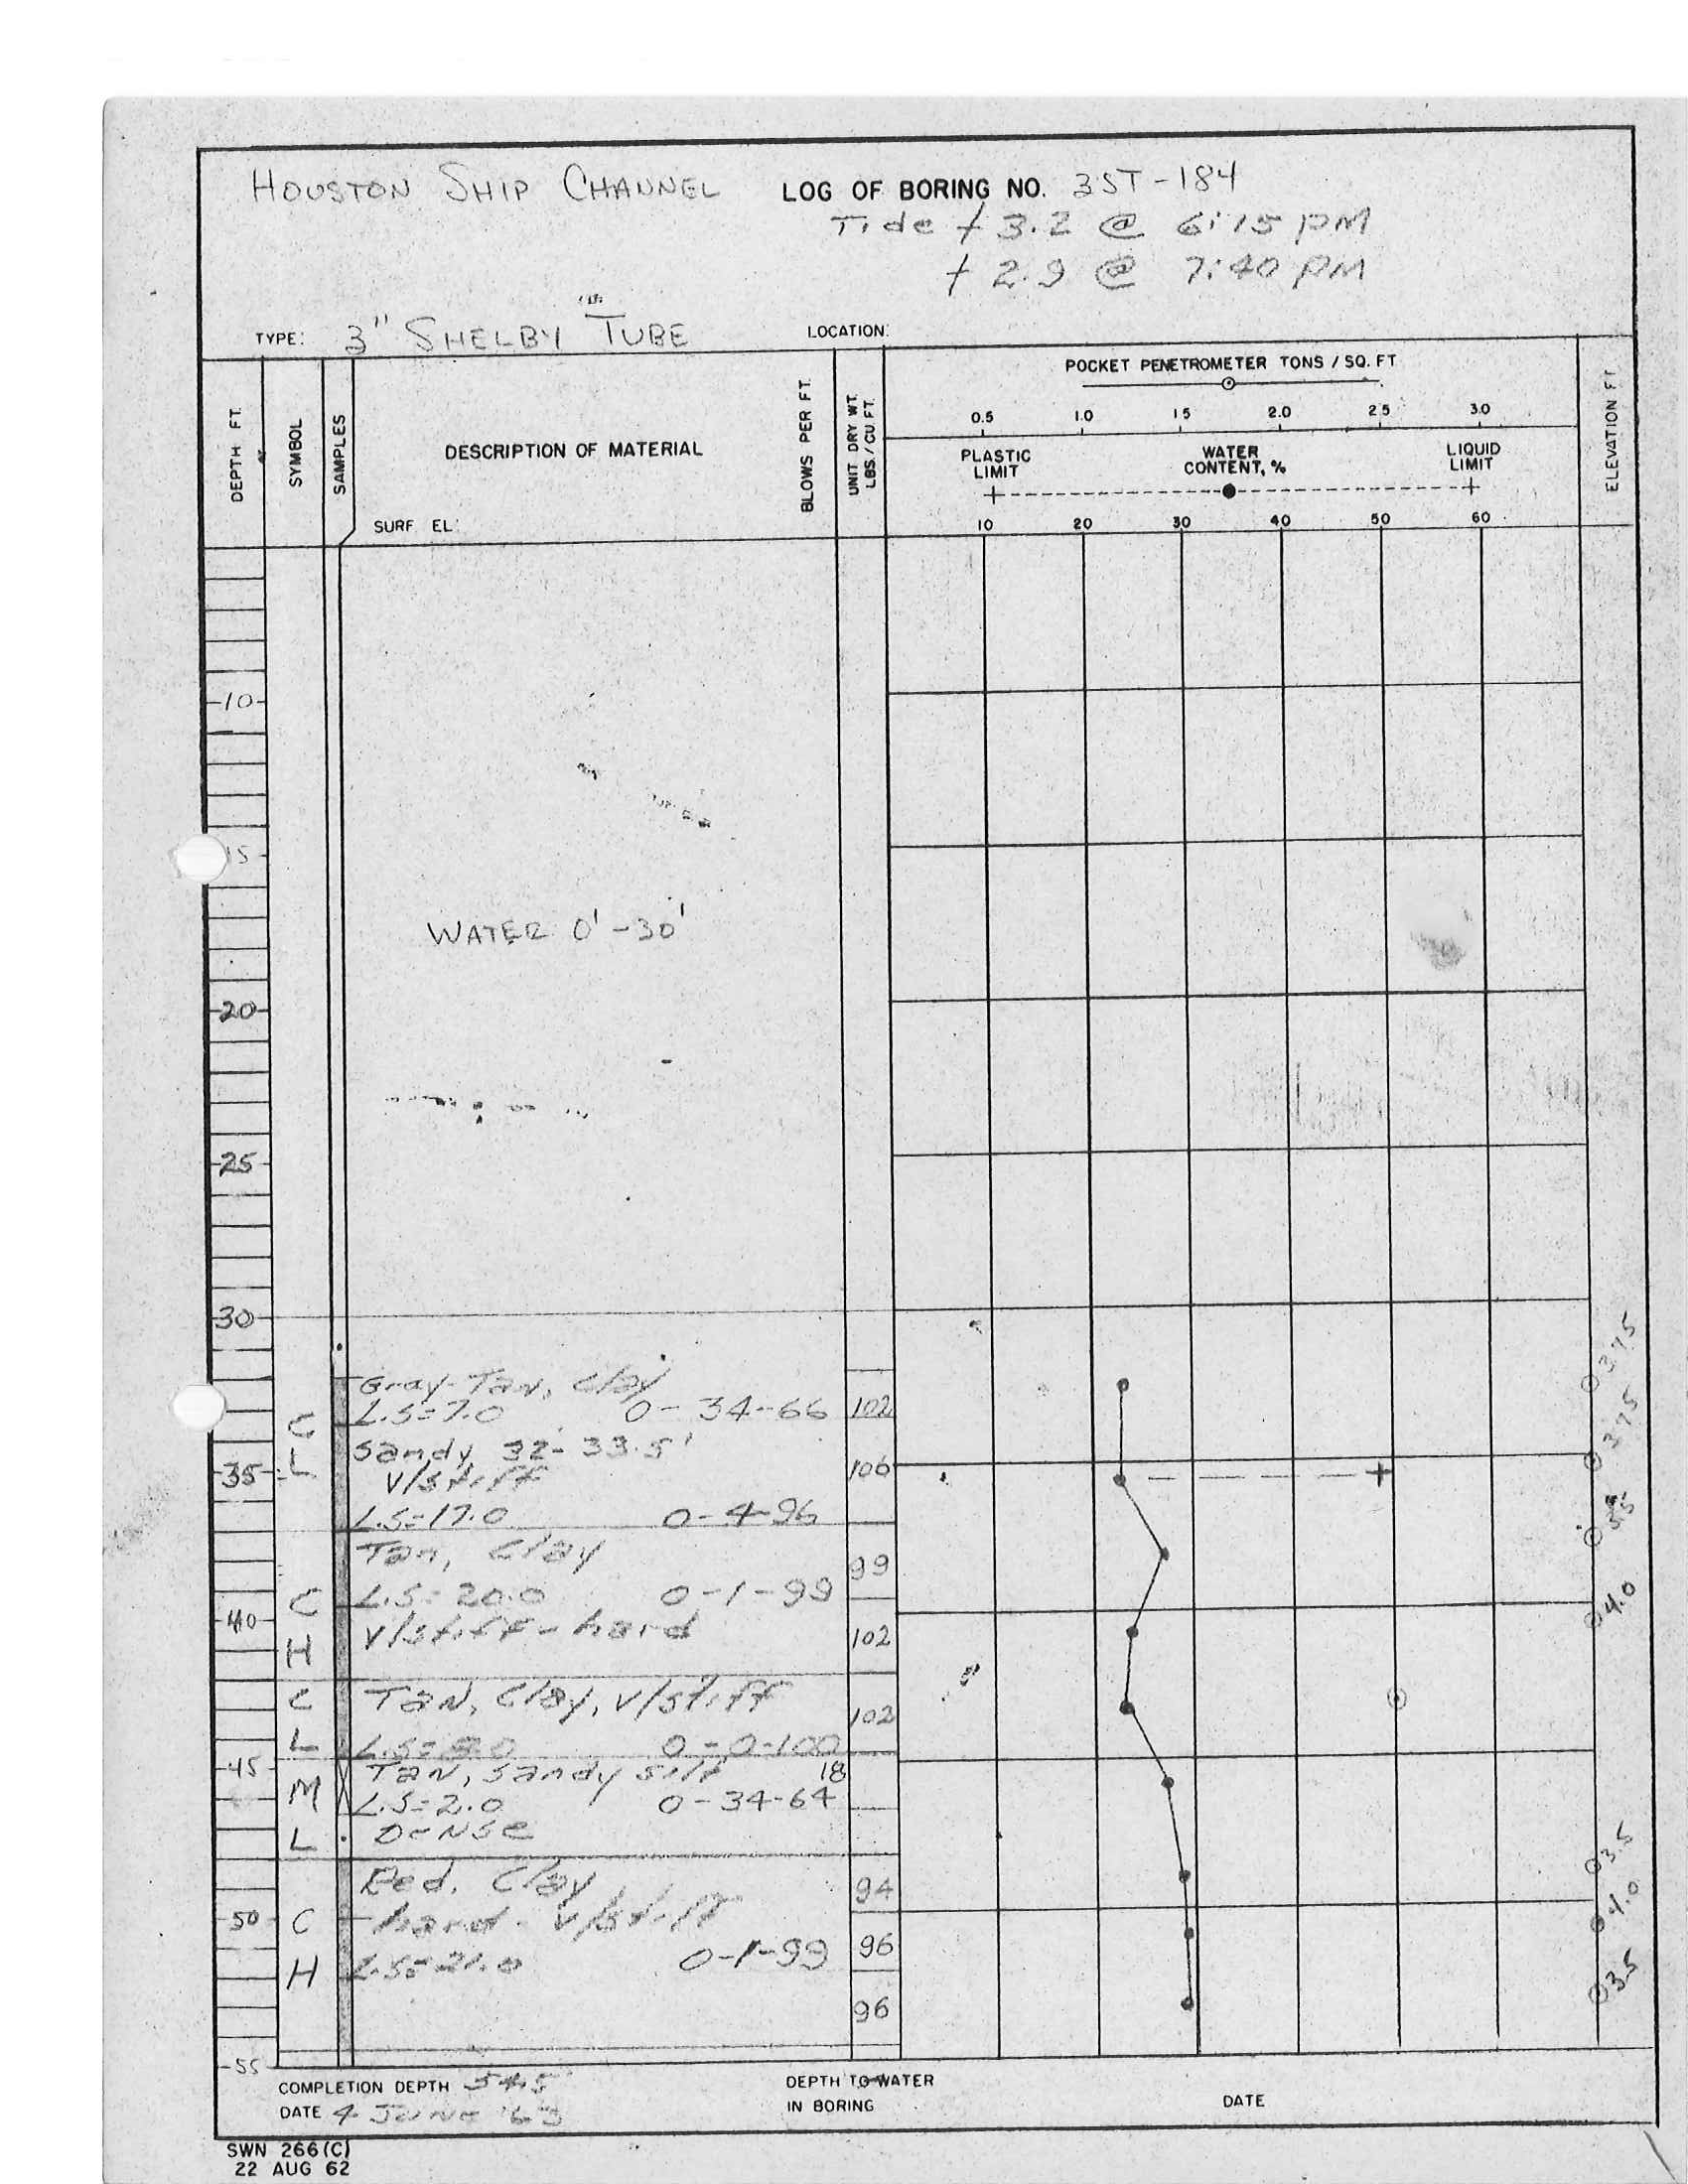 HOUSTON SHIP CHANNEL LOG OF BORING NO. 3ST-184
Tide + 3.2 @ 6:15 PM
+ 2.9 @ 7:40 PM
TYPE: 3" SHELBY TUBE LOCATION:
DEPTH FT.
SYMBOL
SAMPLES
DESCRIPTION OF MATERIAL
SURF. EL:
BLOWS PER FT.
UNIT DRY WT. LBS./CU FT.
POCKET PENETROMETER TONS / SQ. FT
0.5 1.0 1.5 2.0 2.5 3.0
PLASTIC LIMIT
WATER CONTENT, %
LIQUID LIMIT
10 20 30 40 50 60
ELEVATION FT.
10
15
WATER 0' - 30'
20
25
30
Gray-Tan, Clay 3.75
L.S=7.0 0-34-66 102
Sandy 32-33.5' 3.75
35 CL V/stiff 106
L.S=17.0 0-4-96 3.5
Tan, Clay 99
L.S=20.0 0-1-99
40 CH V/stiff-hard 102 4.0
CL TaN, Clay, V/stiff 102
L.S= 0-0-100
45 TaN, Sandy silt 18
ML L.S=2.0 0-34-64
DeNse
Red, Clay 94 3.5
50 CH hard - V/stiff 4.0
L.S=21.0 0-1-99 96
96 3.5
55
COMPLETION DEPTH 54.5 DEPTH TO WATER
DATE 4 JUNE '63 IN BORING DATE
SWN 266(C)
22 AUG 62